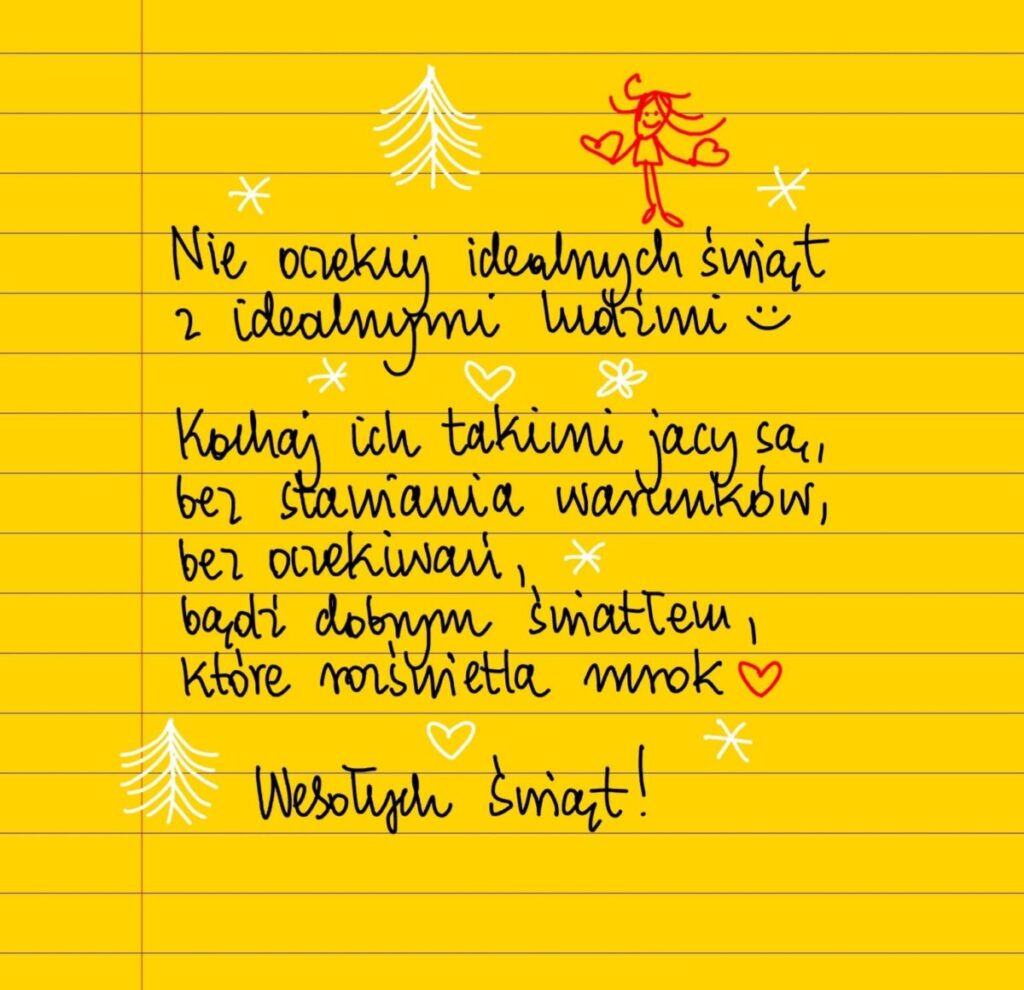 Nie oczekuj idealnych świąt
z idealnymi ludźmi :)
Kochaj ich takimi jacy są,
bez stawiania warunków,
bez oczekiwań,
bądź dobrym światłem,
które rozświetla mrok
Wesołych świąt!